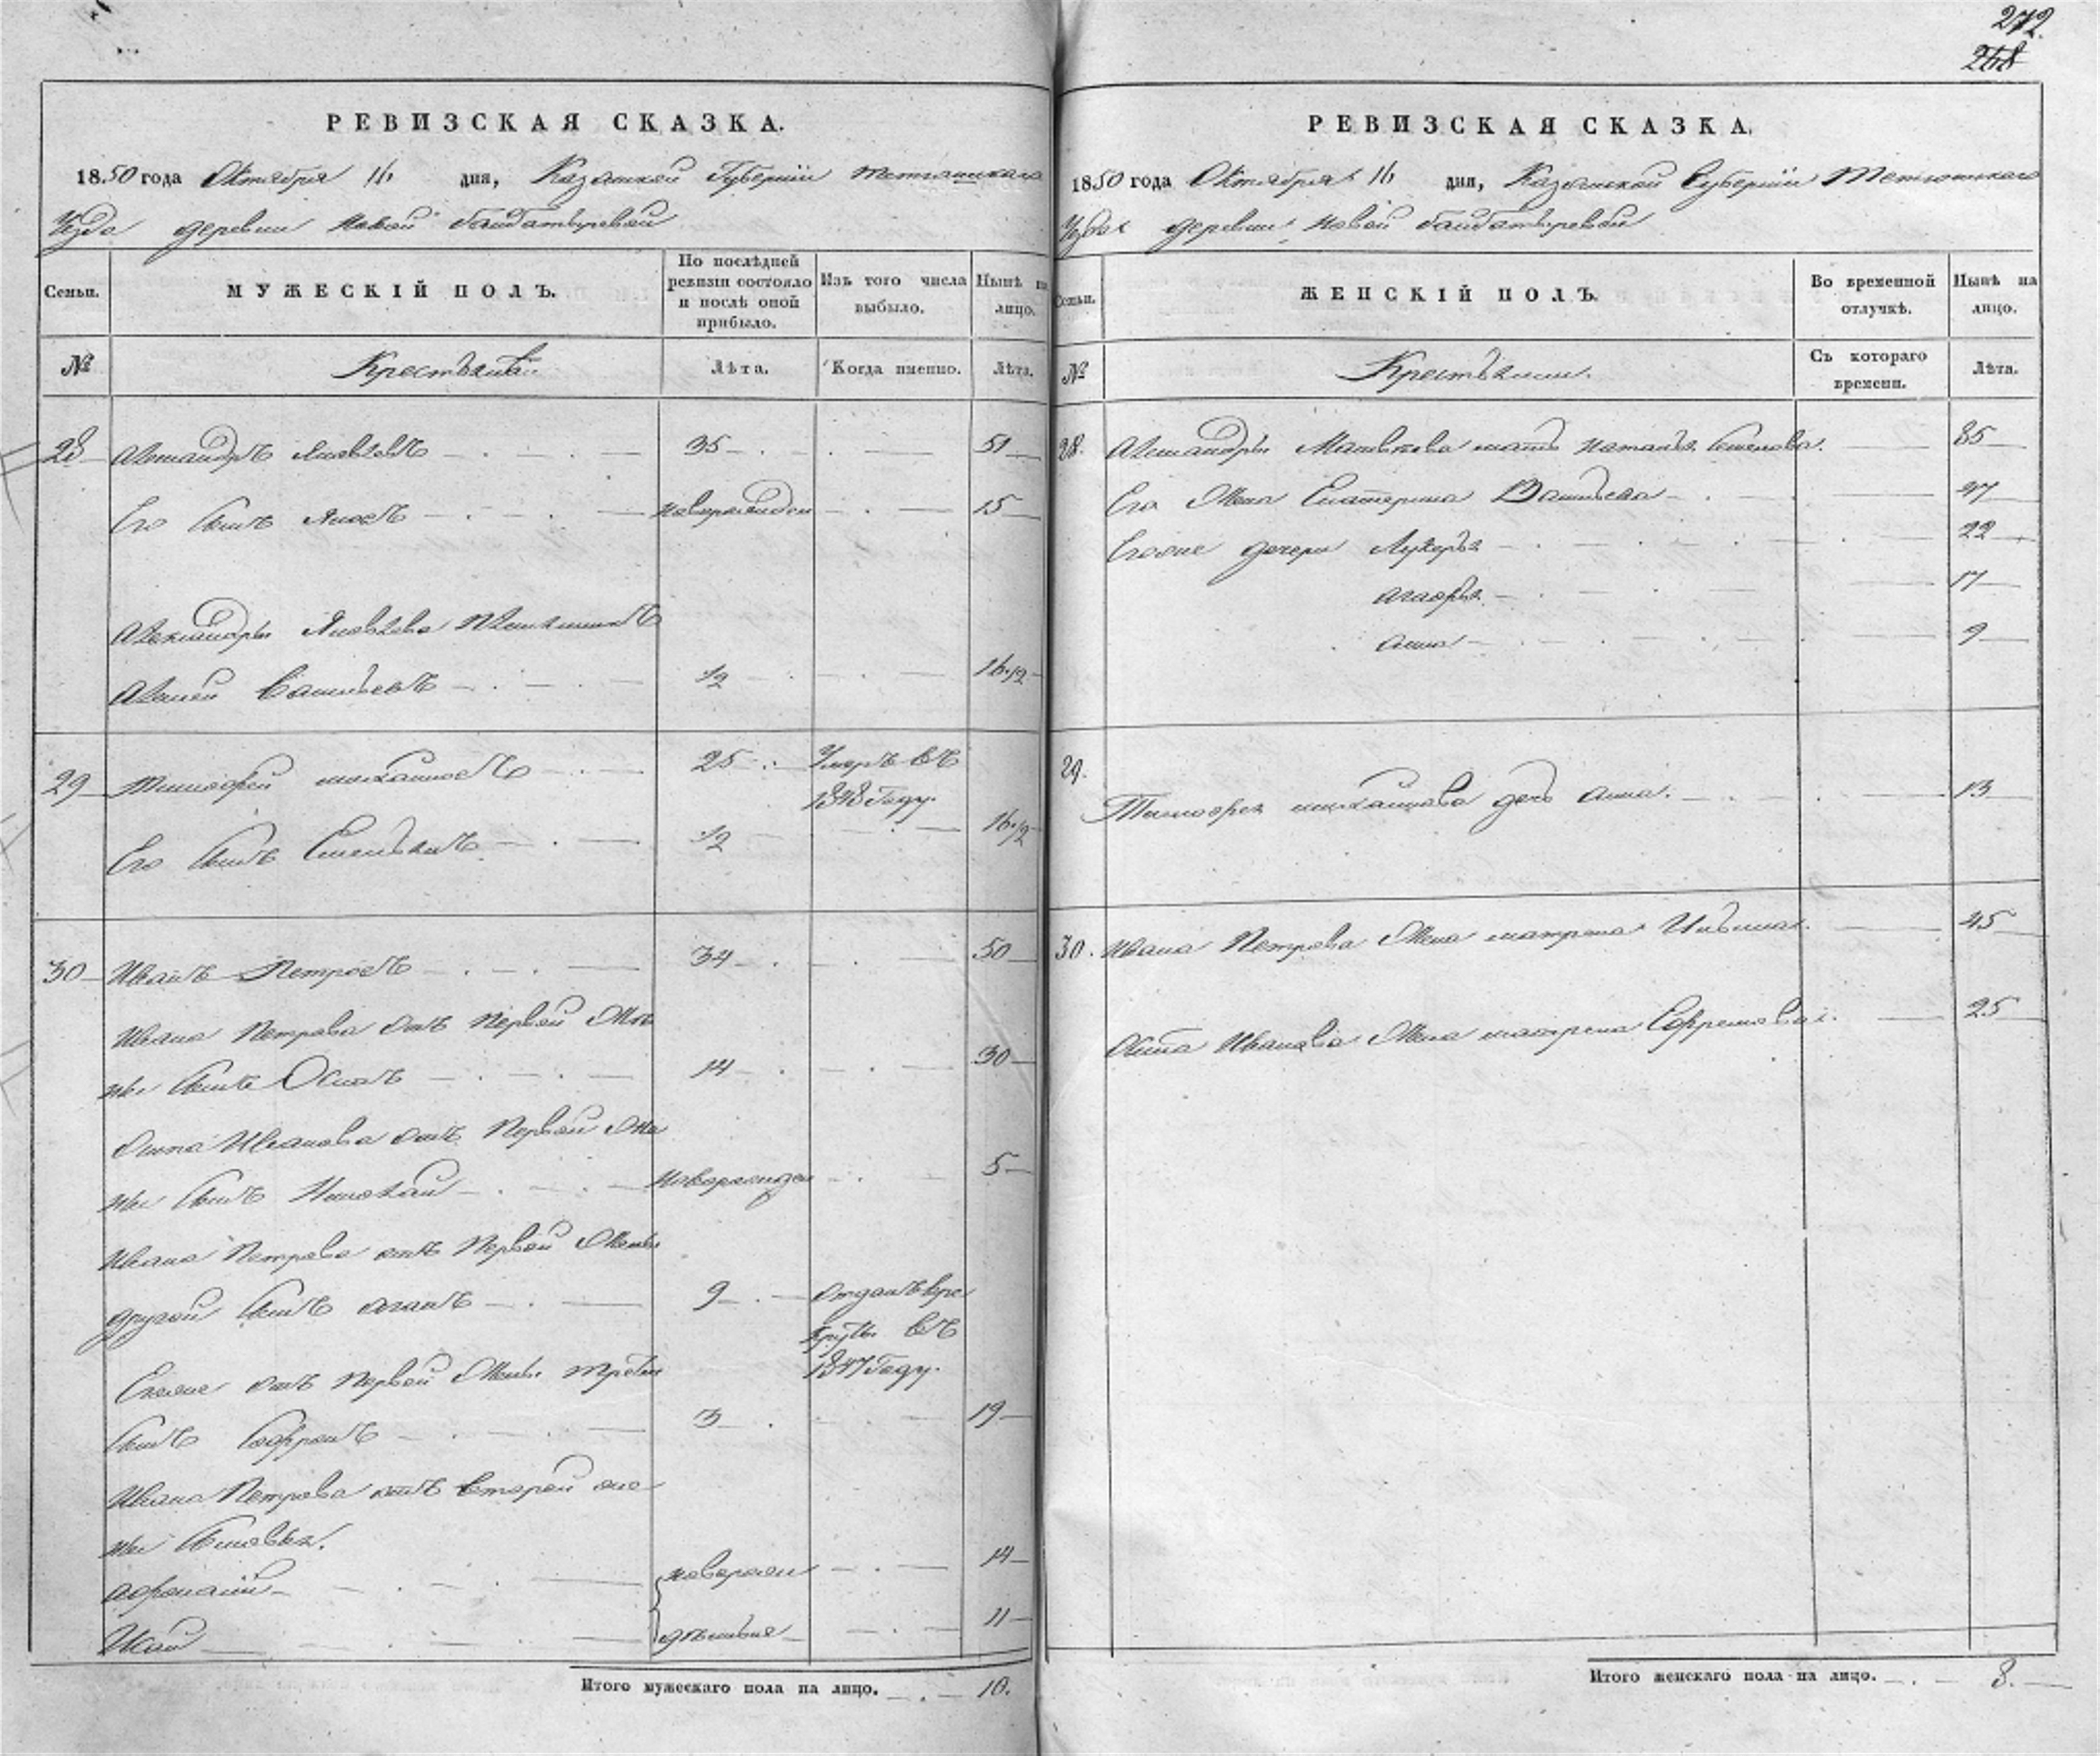 272.
268
РЕВИЗСКАЯ СКАЗКА.
1850 года Октября 16 дня, Казанской Губерніи Тетюшскаго
Уезда деревни Новой Байбатыревой
Семьи.
МУЖЕСКІЙ ПОЛЪ.
По послѣдней ревизіи состояло и послѣ оной прибыло.
Изъ того числа выбыло.
Нынѣ на лицо.
№
Крестьяне
Лѣта.
Когда именно.
Лѣта.
28 Александръ Яковлевъ 35 51
Его сынъ Яковъ новорожден 15
Александры Яковлева племянникъ
Алексей Васильевъ 1/2 16 1/2
29 Тимофей Михайловъ 25 Умеръ въ
1848 Году.
Его сынъ Емельянъ 1/2 16 1/2
30 Иванъ Петровъ 34 50
Ивана Петрова отъ первой Же
ны сынъ Осипъ 14 30
Осипа Иванова отъ Первой Же
ны сынъ Николай новорожден 5
Ивана Петрова отъ первой Жены
другой сынъ 9 Отданъ вре
круты въ
1847 Году.
Еговже отъ первой Жены третий
сынъ Софронъ 3 19
Ивана Петрова отъ второй же
ны сыновья.
Афонасий новорож 14
Исай денные 11
Итого мужескаго пола на лицо. 10.
РЕВИЗСКАЯ СКАЗКА.
1850 года Октября 16 дня, Казанской Губерніи Тетюшскаго
Уезда деревни Новой Байбатыревой
Семьи.
ЖЕНСКІЙ ПОЛЪ.
Во временной отлучкѣ.
Нынѣ на лицо.
№
Крестьянки.
Съ котораго времени.
Лѣта.
28. Александры мать Наталья Семенова. 85
Его Жена Екатерина Васильева 47
Еговже дочери Лукерья 22
Агафья 17
Анна 9
29.
Тимофея Михайлова дочь Анна. 13
30. Ивана Петрова Жена Матрена Ильина. 45
Осипа Иванова Жена Матрена Ефремова. 25
Итого женскаго пола на лицо. 8.